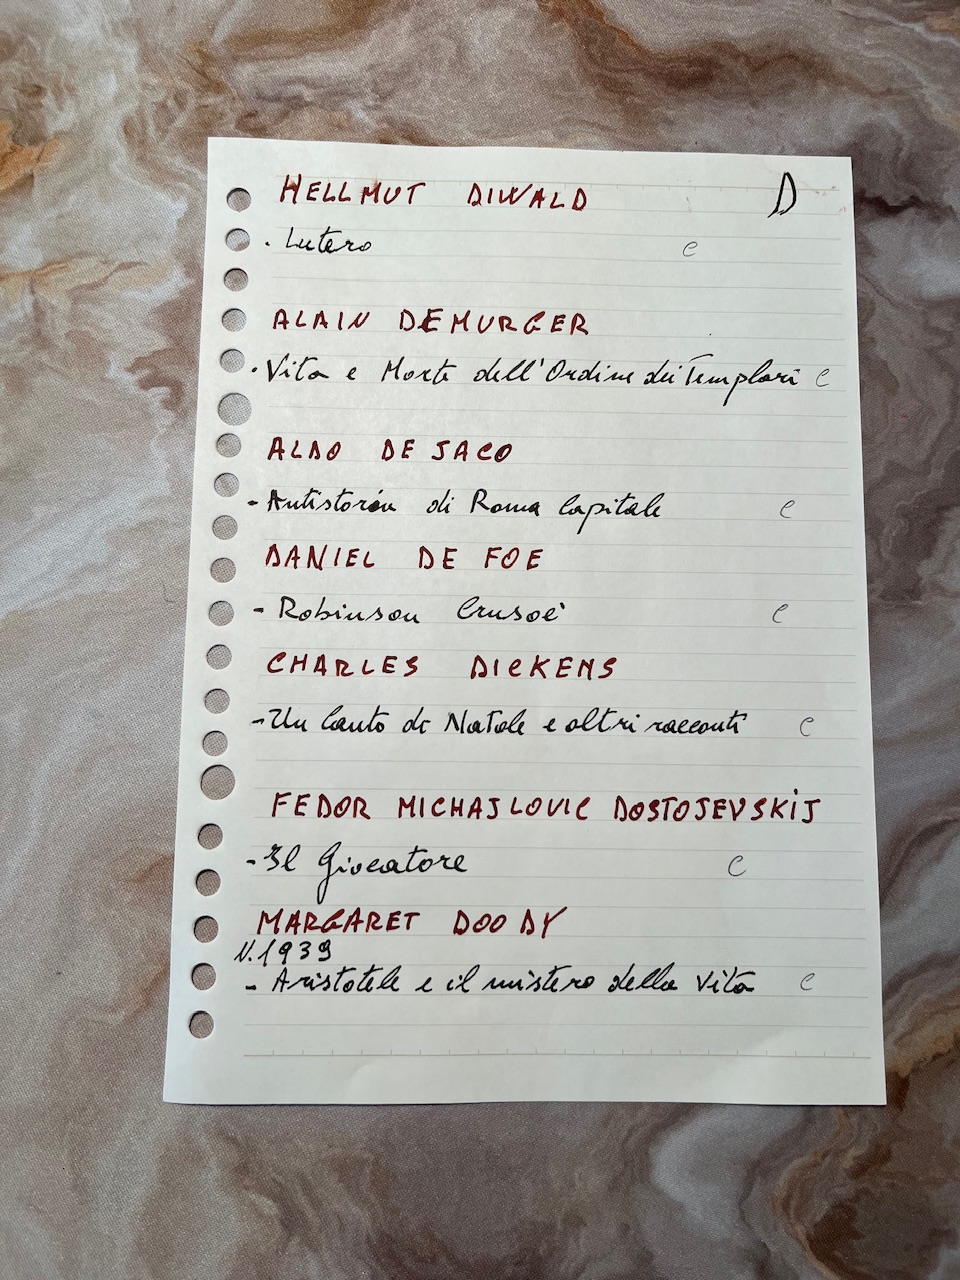 HELLMUT DIWALD D
· Lutero e
ALAIN DEMURGER
· Vita e Morte dell'Ordine dei Templari e
ALDO DE JACO
- Antistoria di Roma Capitale e
DANIEL DE FOE
- Robinson Crusoè e
CHARLES DICKENS
- Un Canto di Natale e altri racconti e
FEDOR MICHAJLOVIC DOSTOJEVSKIJ
- Il Giocatore e
MARGARET DOODY
N. 1939
- Aristotele e il mistero della Vita e